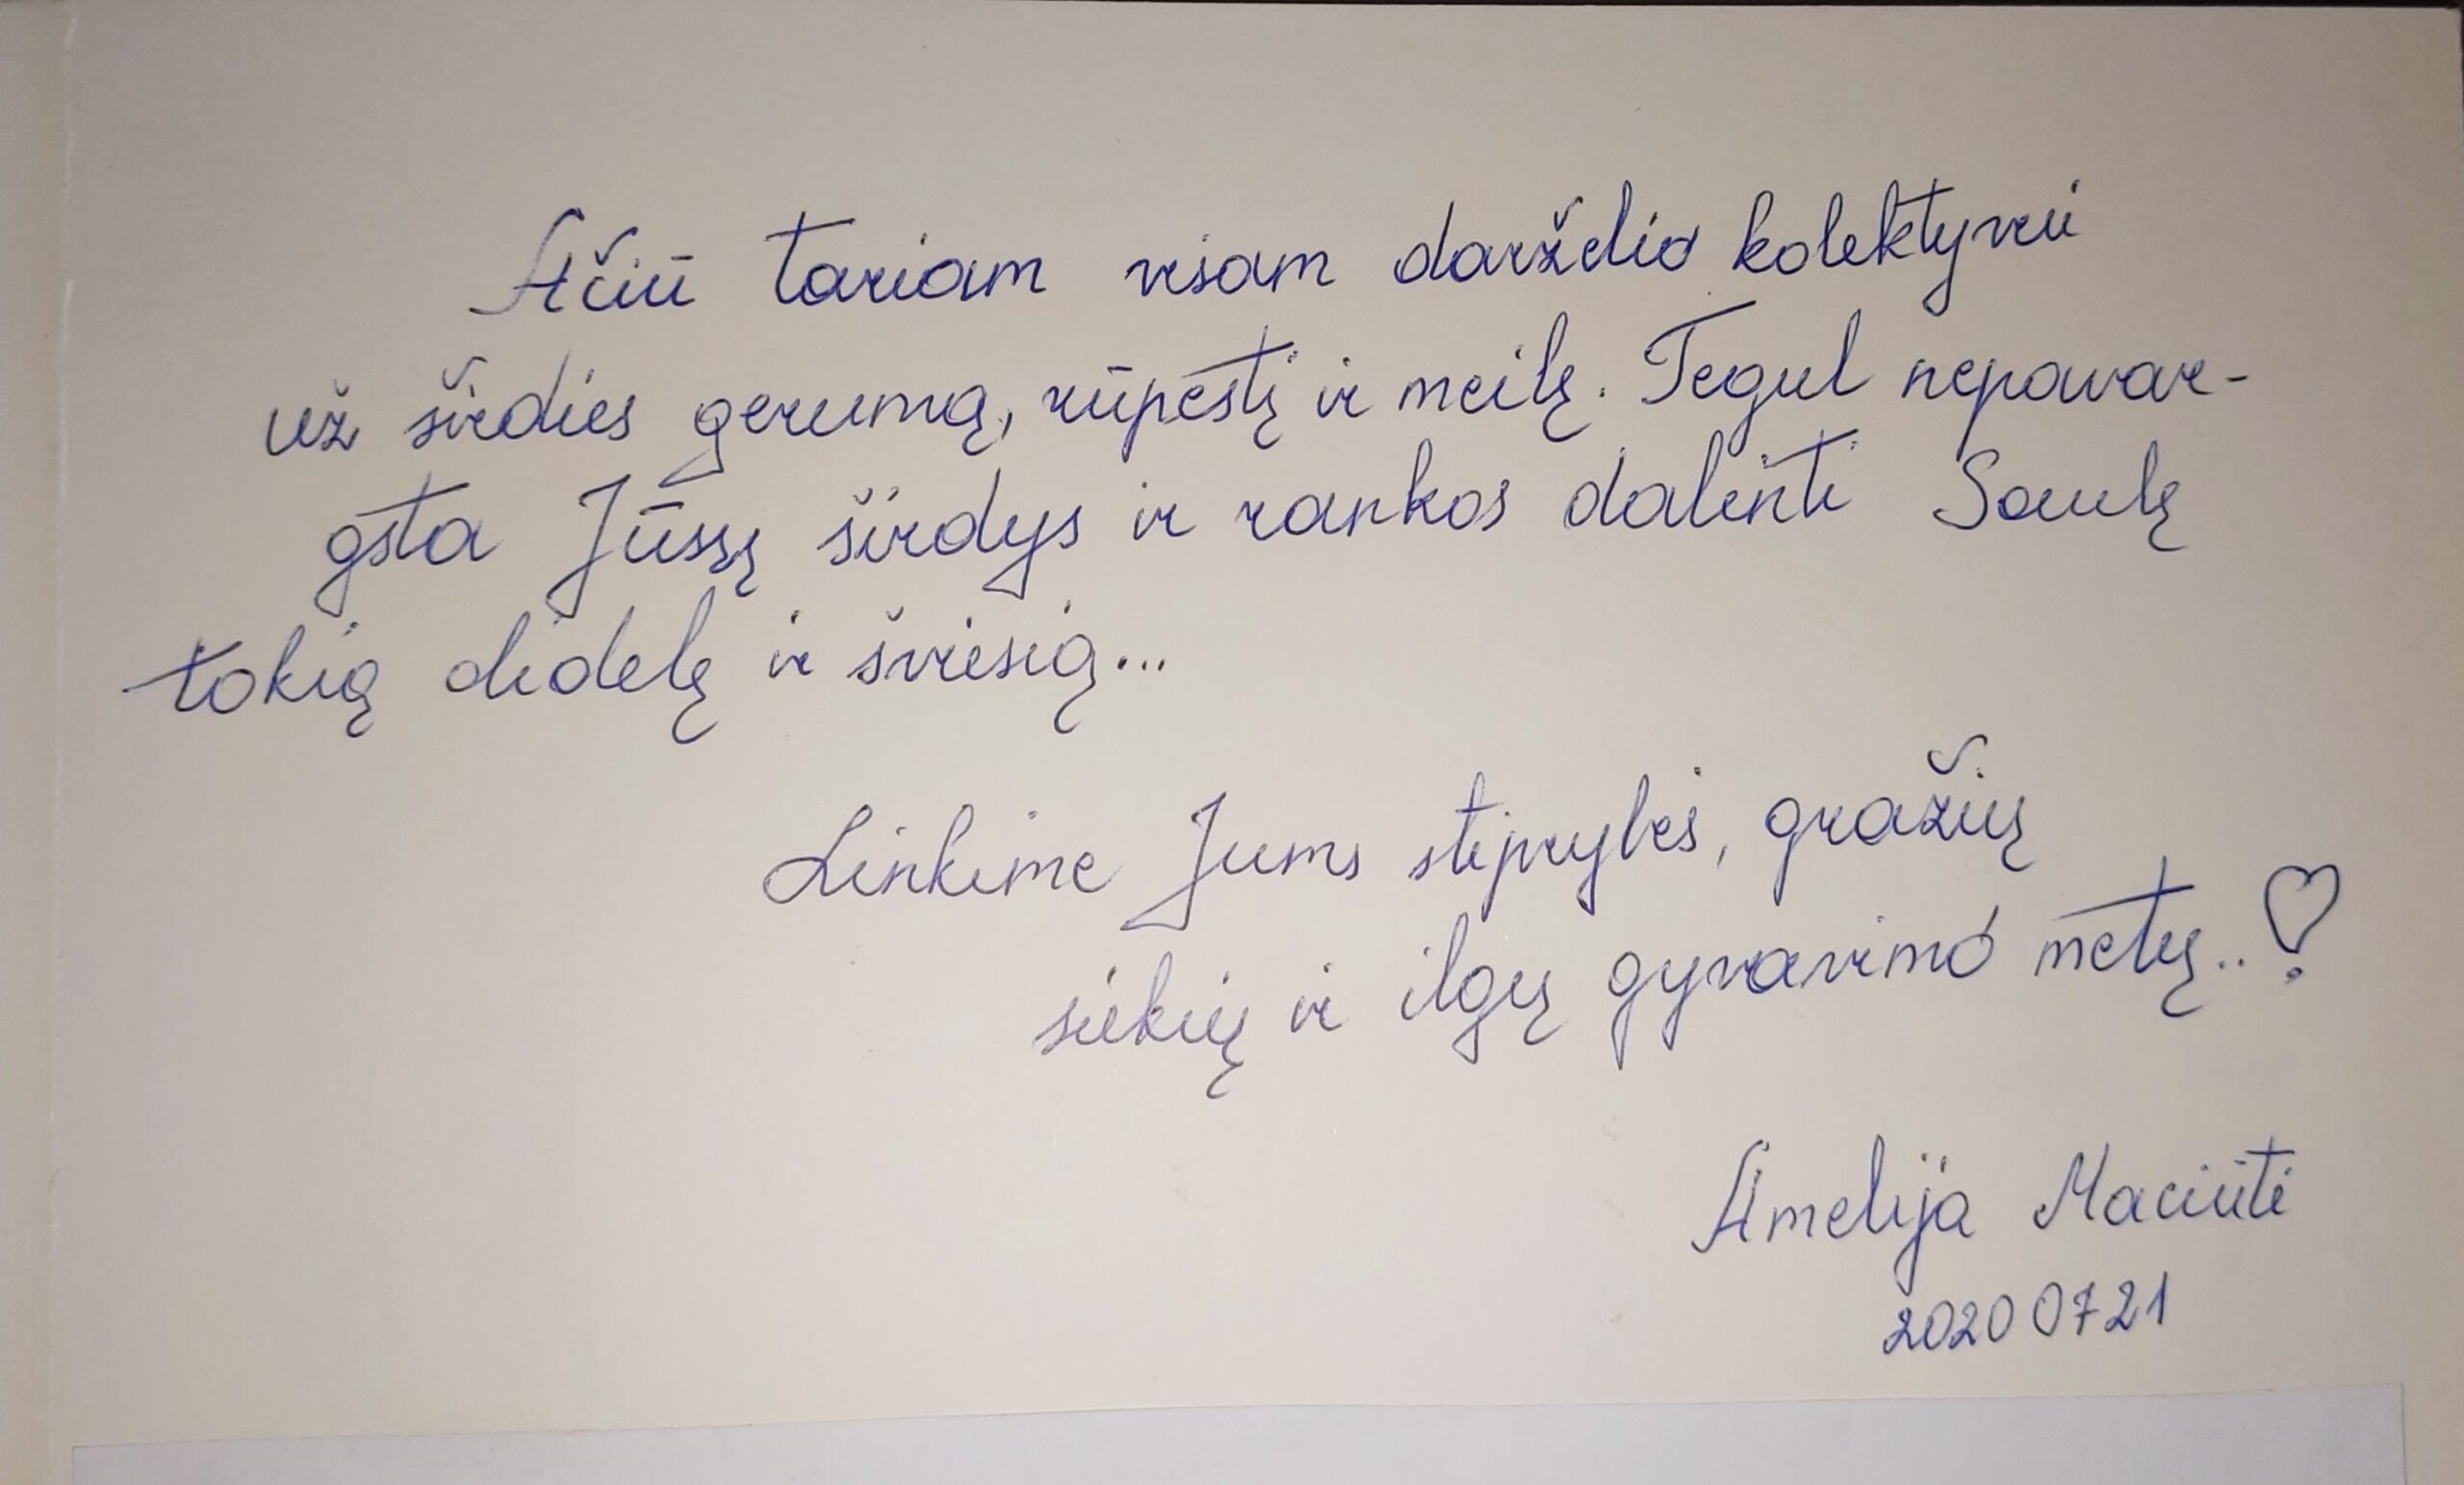 Ačiū tariam visam darželio kolektyvui
už širdies gerumą, rūpestį ir meilę. Tegul nepavar-
gsta Jūsų širdys ir rankos dalinti Saulę
tokią didelę ir šviesią...
Linkime Jums stiprybės, gražių
siekių ir ilgų gyvavimo metų..
Amelija Maciūtė
2020 07 21